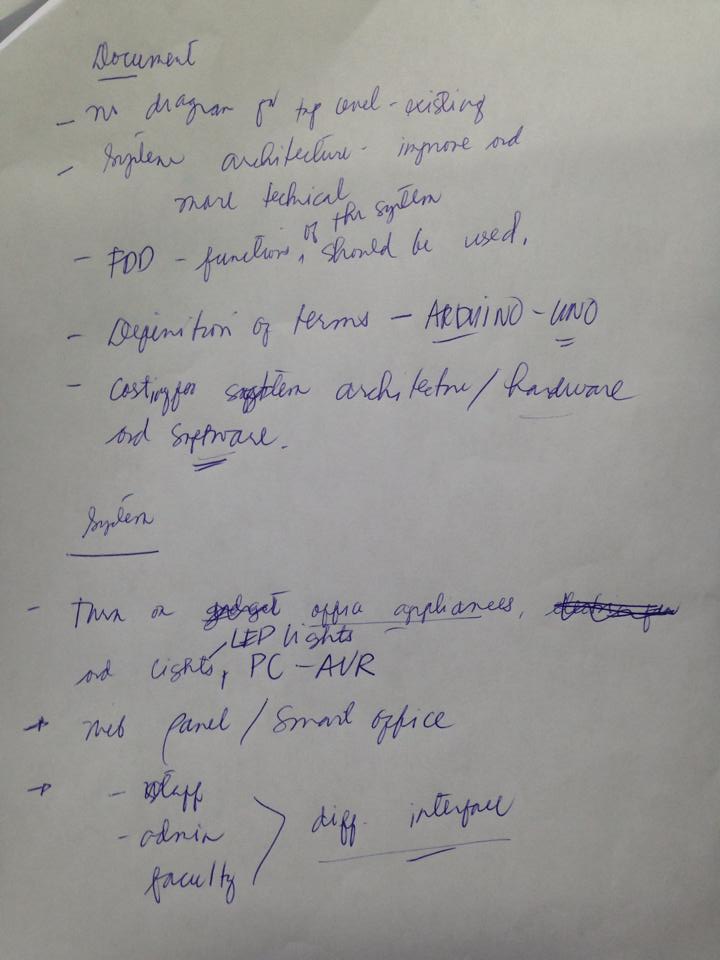 Document
- no diagram for top level - existing
- System architecture - improve and
more technical
of the system
- FDD - functions, should be used.
- Definition of terms - ARDUINO - UNO
- Costing for system architecture / hardware
and software.
System
- Turn on office appliances,
LED lights
and lights, PC - AVR
→ Web panel / Smart office
→ - Staff
- admin
faculty
diff. interface